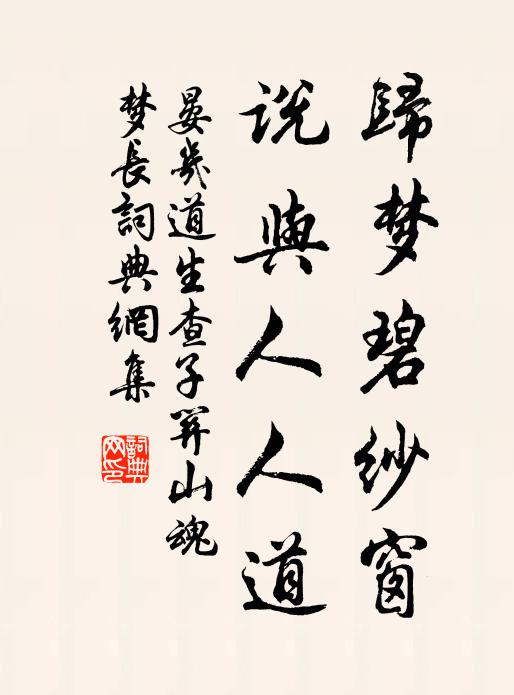 歸梦碧紗窗
說與人人道
晏幾道生查子關山魂
梦長詞典網集
詞典網印